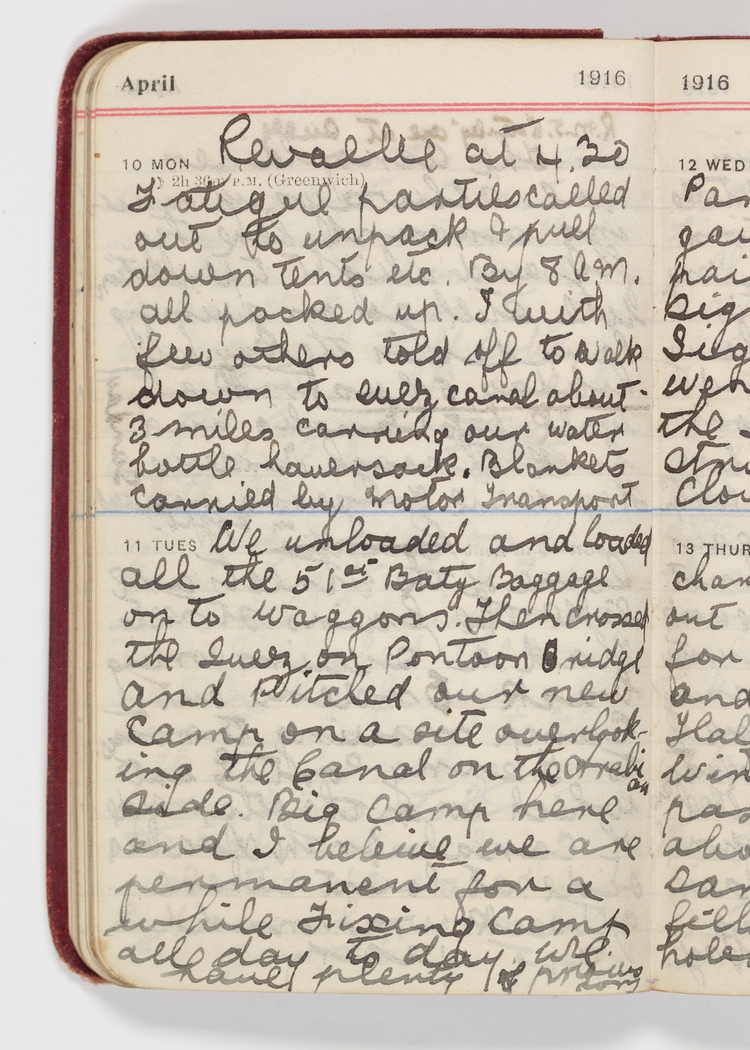 April 1916
10 MON Revallee at 4.30
2h 36m P.M. (Greenwich)
Fatigue parties called
out to unpack & pull
down tents etc. By 8 a.m.
all packed up. I with
few others told off to walk
down to suez canal about
3 miles carrying our water
bottle haversack. Blankets
carried by motor Transport
11 TUES We unloaded and loaded
all the 51st Baty Baggage
on to waggons. Then crossed
the Suez on Pontoon Bridge
and Pitched our new
Camp on a site overlook-
ing the Canal on the Arabi
an
side. Big Camp here
and I beleive we are
permanent for a
while Fixing Camp
all day to day. We
have plenty of
1916
12 WED
Par
gai
pai
sig
Sig
wer
the
stru
Clou
13 THUR
char
out
for
and
Hal
win
pas
abo
san
fill
holes